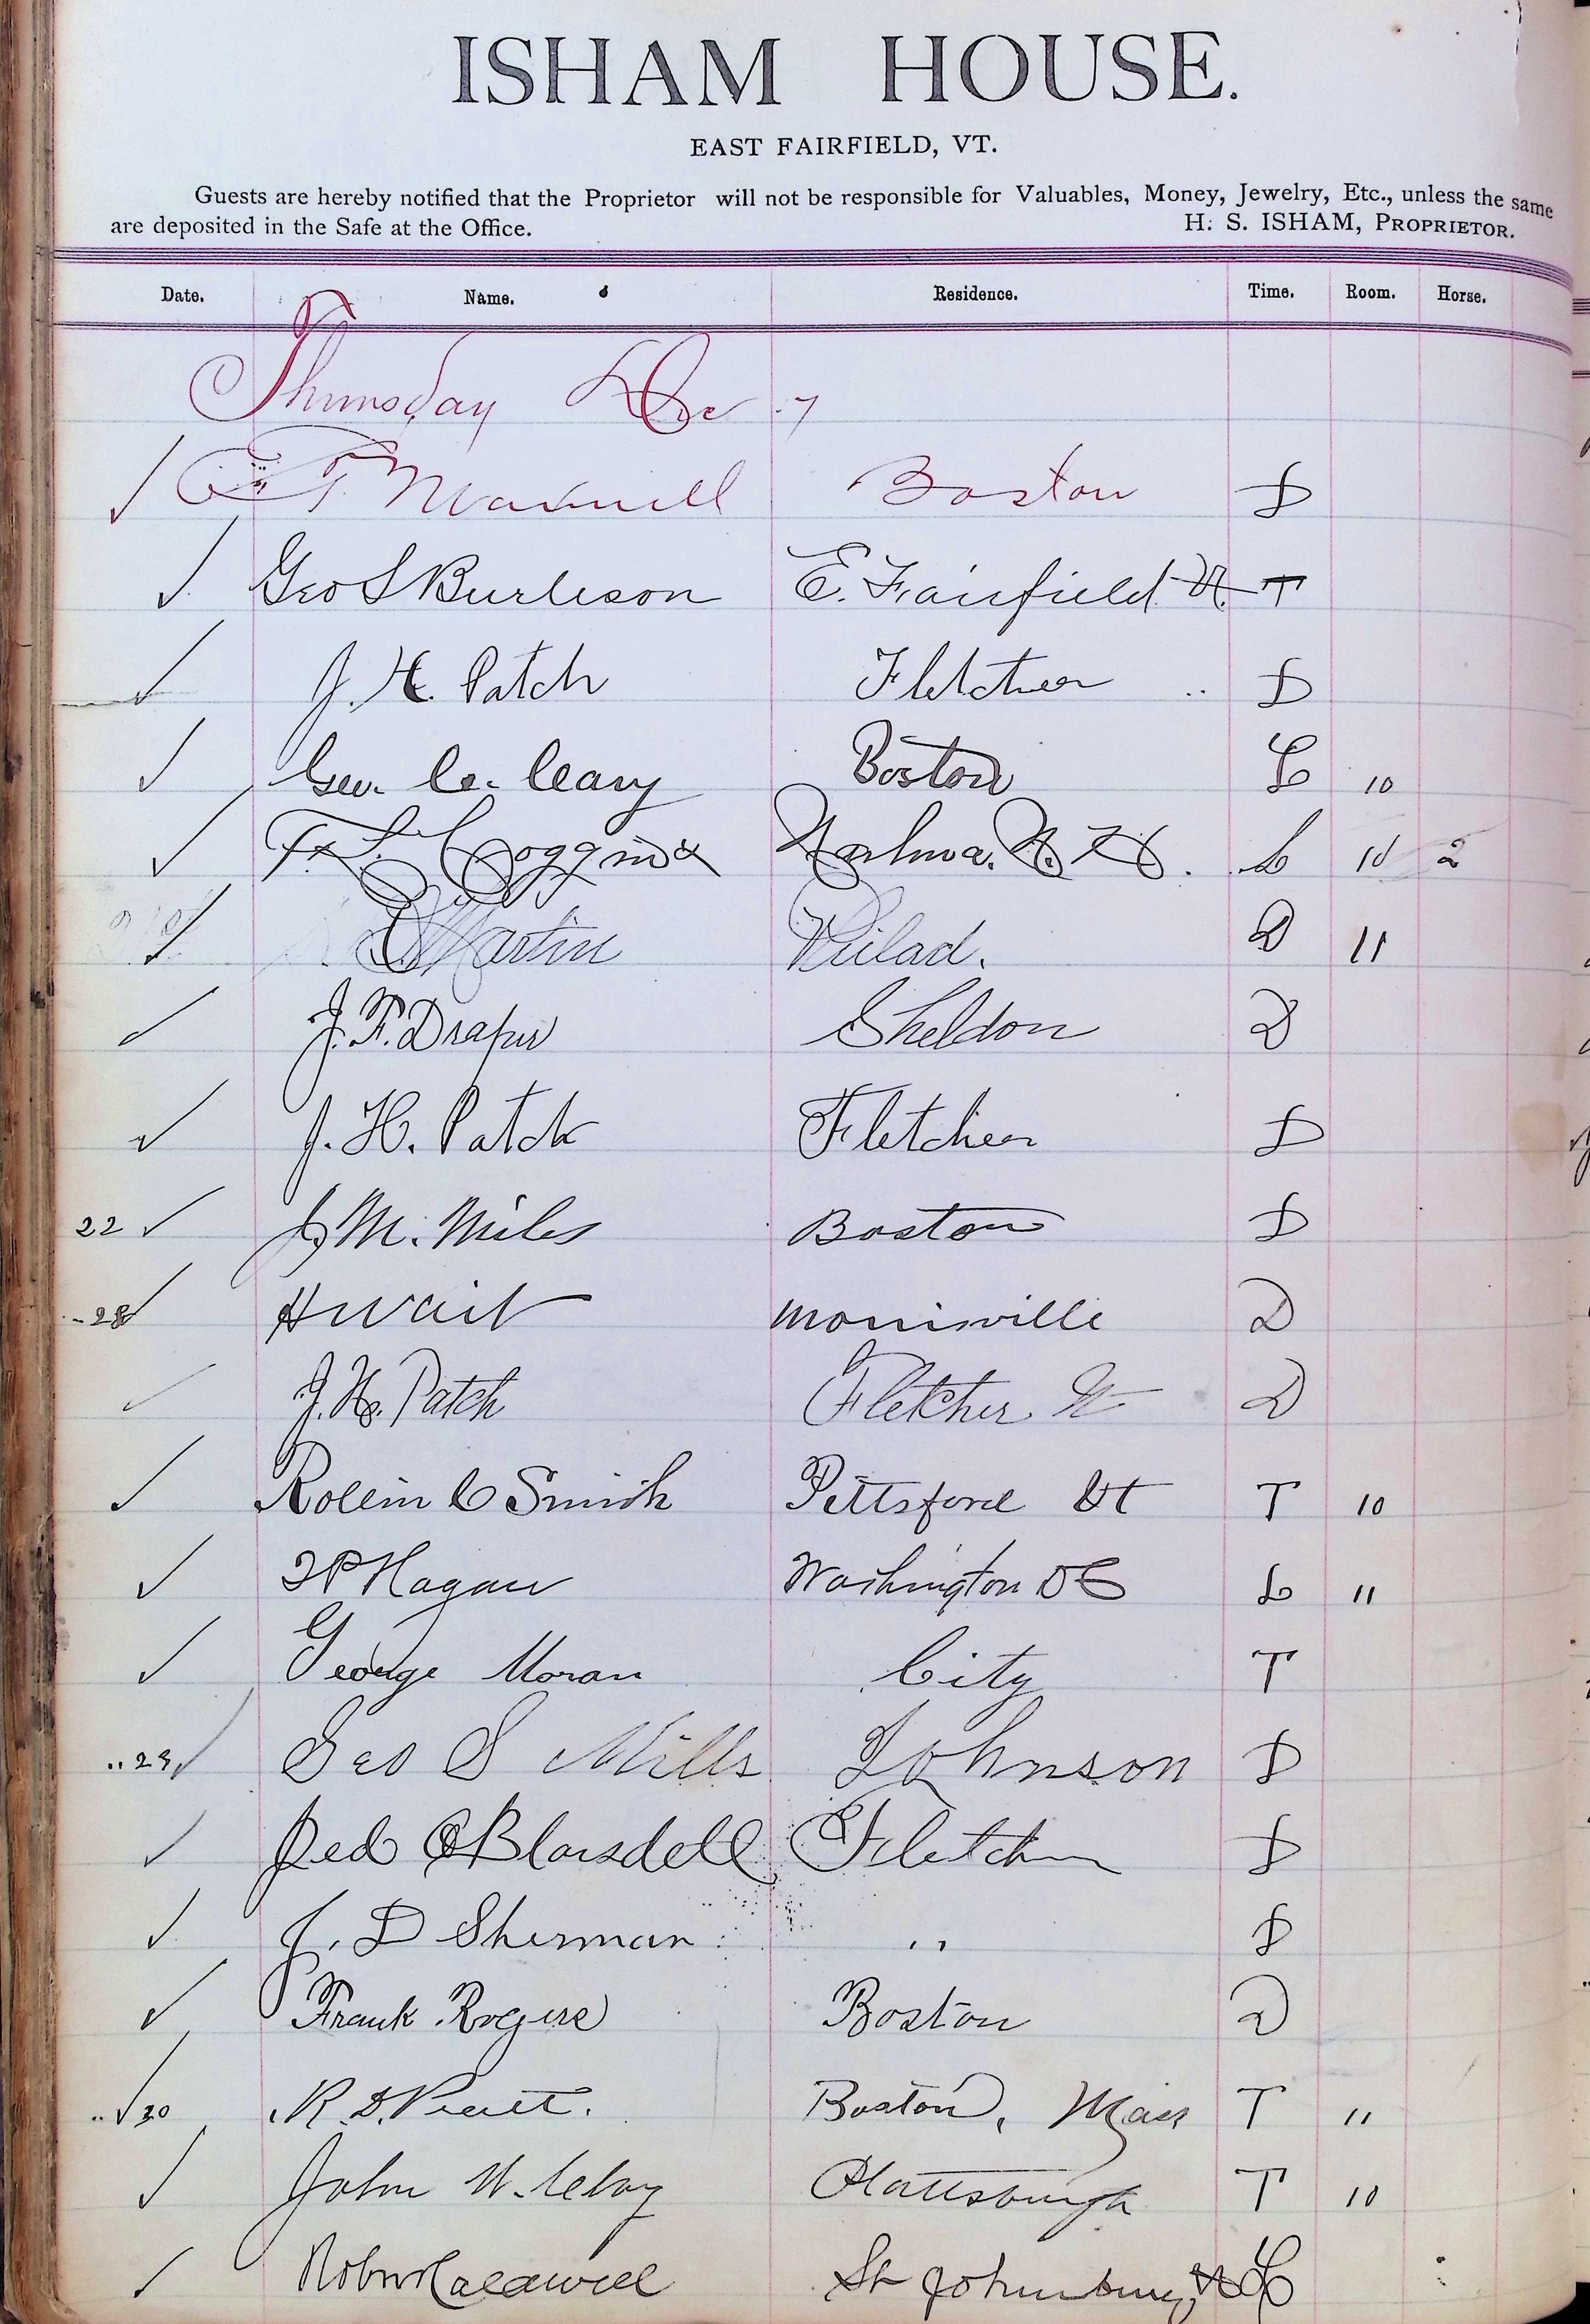 ISHAM HOUSE.
EAST FAIRFIELD, VT.
Guests are hereby notified that the Proprietor will not be responsible for Valuables, Money, Jewelry, Etc., unless the same
are deposited in the Safe at the Office. H. S. ISHAM, PROPRIETOR.
Date. Name. Residence. Time. Room. Horse.
Thursday Dec 7
✓ T Maxwell Boston D
✓ Geo S Burleson E. Fairfield Vt. T
✓ J. H. Patch Fletcher D
✓ Geo. C. Cleary Boston L 10
✓ F. L. Coggin Nashua. N. H. L 10 2
✓ Martin Philad. D 11
✓ J. F. Draper Sheldon D
✓ J. H. Patch Fletcher D
22 ✓ J M. Miles Boston D
28 ✓ H Wait Morrisville D
✓ J. H. Patch Fletcher Vt D
✓ Rollin C Smith Pittsford Vt T 10
✓ J P Hagan Washington DC L 11
✓ George Moran City T
.. 29 ✓ Geo S Mills Johnson D
✓ Jed O Blaisdell Fletcher D
✓ J. D Sherman " D
✓ Frank Rogers Boston D
.. ✓ 30 R. D. Boston, Mass T 11
✓ John W. Plattsburgh T 10
✓ Caldwell St Johnsbury, Vt L